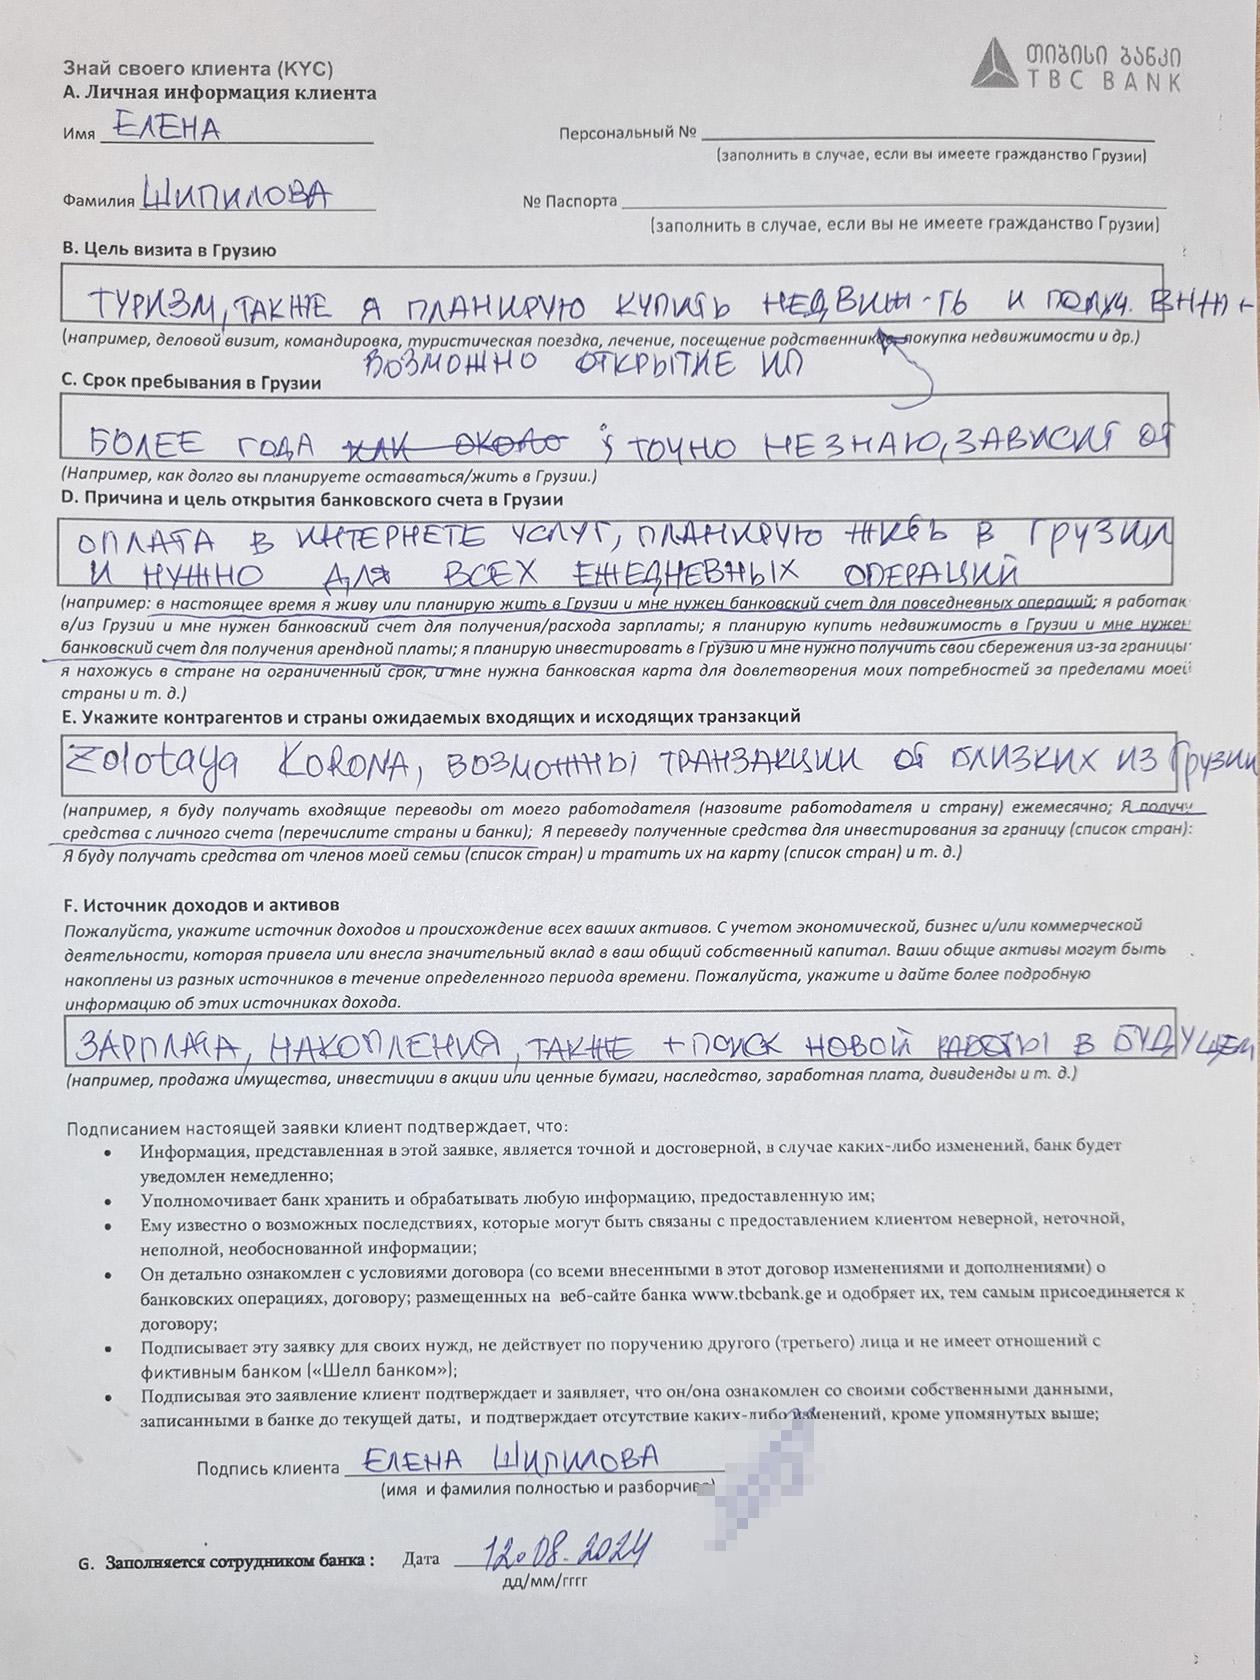 Знай своего клиента (KYC)
თიბისი ბანკი
TBC BANK
А. Личная информация клиента
Имя ЕЛЕНА
Персональный №
(заполнить в случае, если вы имеете гражданство Грузии)
Фамилия ШИПИЛОВА
№ Паспорта
(заполнить в случае, если вы не имеете гражданство Грузии)
В. Цель визита в Грузию
ТУРИЗМ, ТАКЖЕ Я ПЛАНИРУЮ КУПИТЬ НЕДВИЖ-ТЬ И ПОЛУЧ. ВНЖ +
(например, деловой визит, командировка, туристическая поездка, лечение, посещение родственников, покупка недвижимости и др.)
ВОЗМОЖНО ОТКРЫТИЕ ИП
С. Срок пребывания в Грузии
БОЛЕЕ ГОДА ИЛИ ОКОЛО ; ТОЧНО НЕ ЗНАЮ, ЗАВИСИТ ОТ
(Например, как долго вы планируете оставаться/жить в Грузии.)
D. Причина и цель открытия банковского счета в Грузии
ОПЛАТА В ИНТЕРНЕТЕ УСЛУГ, ПЛАНИРУЮ ЖИТЬ В ГРУЗИИ
И НУЖНО ДЛЯ ВСЕХ ЕЖЕДНЕВНЫХ ОПЕРАЦИЙ
(например: в настоящее время я живу или планирую жить в Грузии и мне нужен банковский счет для повседневных операций; я работаю
в/из Грузии и мне нужен банковский счет для получения/расхода зарплаты; я планирую купить недвижимость в Грузии и мне нужен
банковский счет для получения арендной платы; я планирую инвестировать в Грузию и мне нужно получить свои сбережения из-за границы;
я нахожусь в стране на ограниченный срок, и мне нужна банковская карта для довлетворения моих потребностей за пределами моей
страны и т. д.)
Е. Укажите контрагентов и страны ожидаемых входящих и исходящих транзакций
Zolotaya KORONA, ВОЗМОЖНЫ ТРАНЗАКЦИИ ОТ БЛИЗКИХ ИЗ Грузии
(например, я буду получать входящие переводы от моего работодателя (назовите работодателя и страну) ежемесячно; Я получу
средства с личного счета (перечислите страны и банки); Я переведу полученные средства для инвестирования за границу (список стран):
Я буду получать средства от членов моей семьи (список стран) и тратить их на карту (список стран) и т. д.)
F. Источник доходов и активов
Пожалуйста, укажите источник доходов и происхождение всех ваших активов. С учетом экономической, бизнес и/или коммерческой
деятельности, которая привела или внесла значительный вклад в ваш общий собственный капитал. Ваши общие активы могут быть
накоплены из разных источников в течение определенного периода времени. Пожалуйста, укажите и дайте более подробную
информацию об этих источниках дохода.
ЗАРПЛАТА, НАКОПЛЕНИЯ, ТАКЖЕ + ПОИСК НОВОЙ РАБОТЫ В БУДУЩЕМ
(например, продажа имущества, инвестиции в акции или ценные бумаги, наследство, заработная плата, дивиденды и т. д.)
Подписанием настоящей заявки клиент подтверждает, что:
• Информация, представленная в этой заявке, является точной и достоверной, в случае каких-либо изменений, банк будет
уведомлен немедленно;
• Уполномочивает банк хранить и обрабатывать любую информацию, предоставленную им;
• Ему известно о возможных последствиях, которые могут быть связаны с предоставлением клиентом неверной, неточной,
неполной, необоснованной информации;
• Он детально ознакомлен с условиями договора (со всеми внесенными в этот договор изменениями и дополнениями) о
банковских операциях, договору; размещенных на веб-сайте банка www.tbcbank.ge и одобряет их, тем самым присоединяется к
договору;
• Подписывает эту заявку для своих нужд, не действует по поручению другого (третьего) лица и не имеет отношений с
фиктивным банком («Шелл банком»);
• Подписывая это заявление клиент подтверждает и заявляет, что он/она ознакомлен со своими собственными данными,
записанными в банке до текущей даты, и подтверждает отсутствие каких-либо изменений, кроме упомянутых выше;
Подпись клиента ЕЛЕНА ШИПИЛОВА
(имя и фамилия полностью и разборчиво)
G. Заполняется сотрудником банка : Дата 12.08.2024
дд/мм/гггг